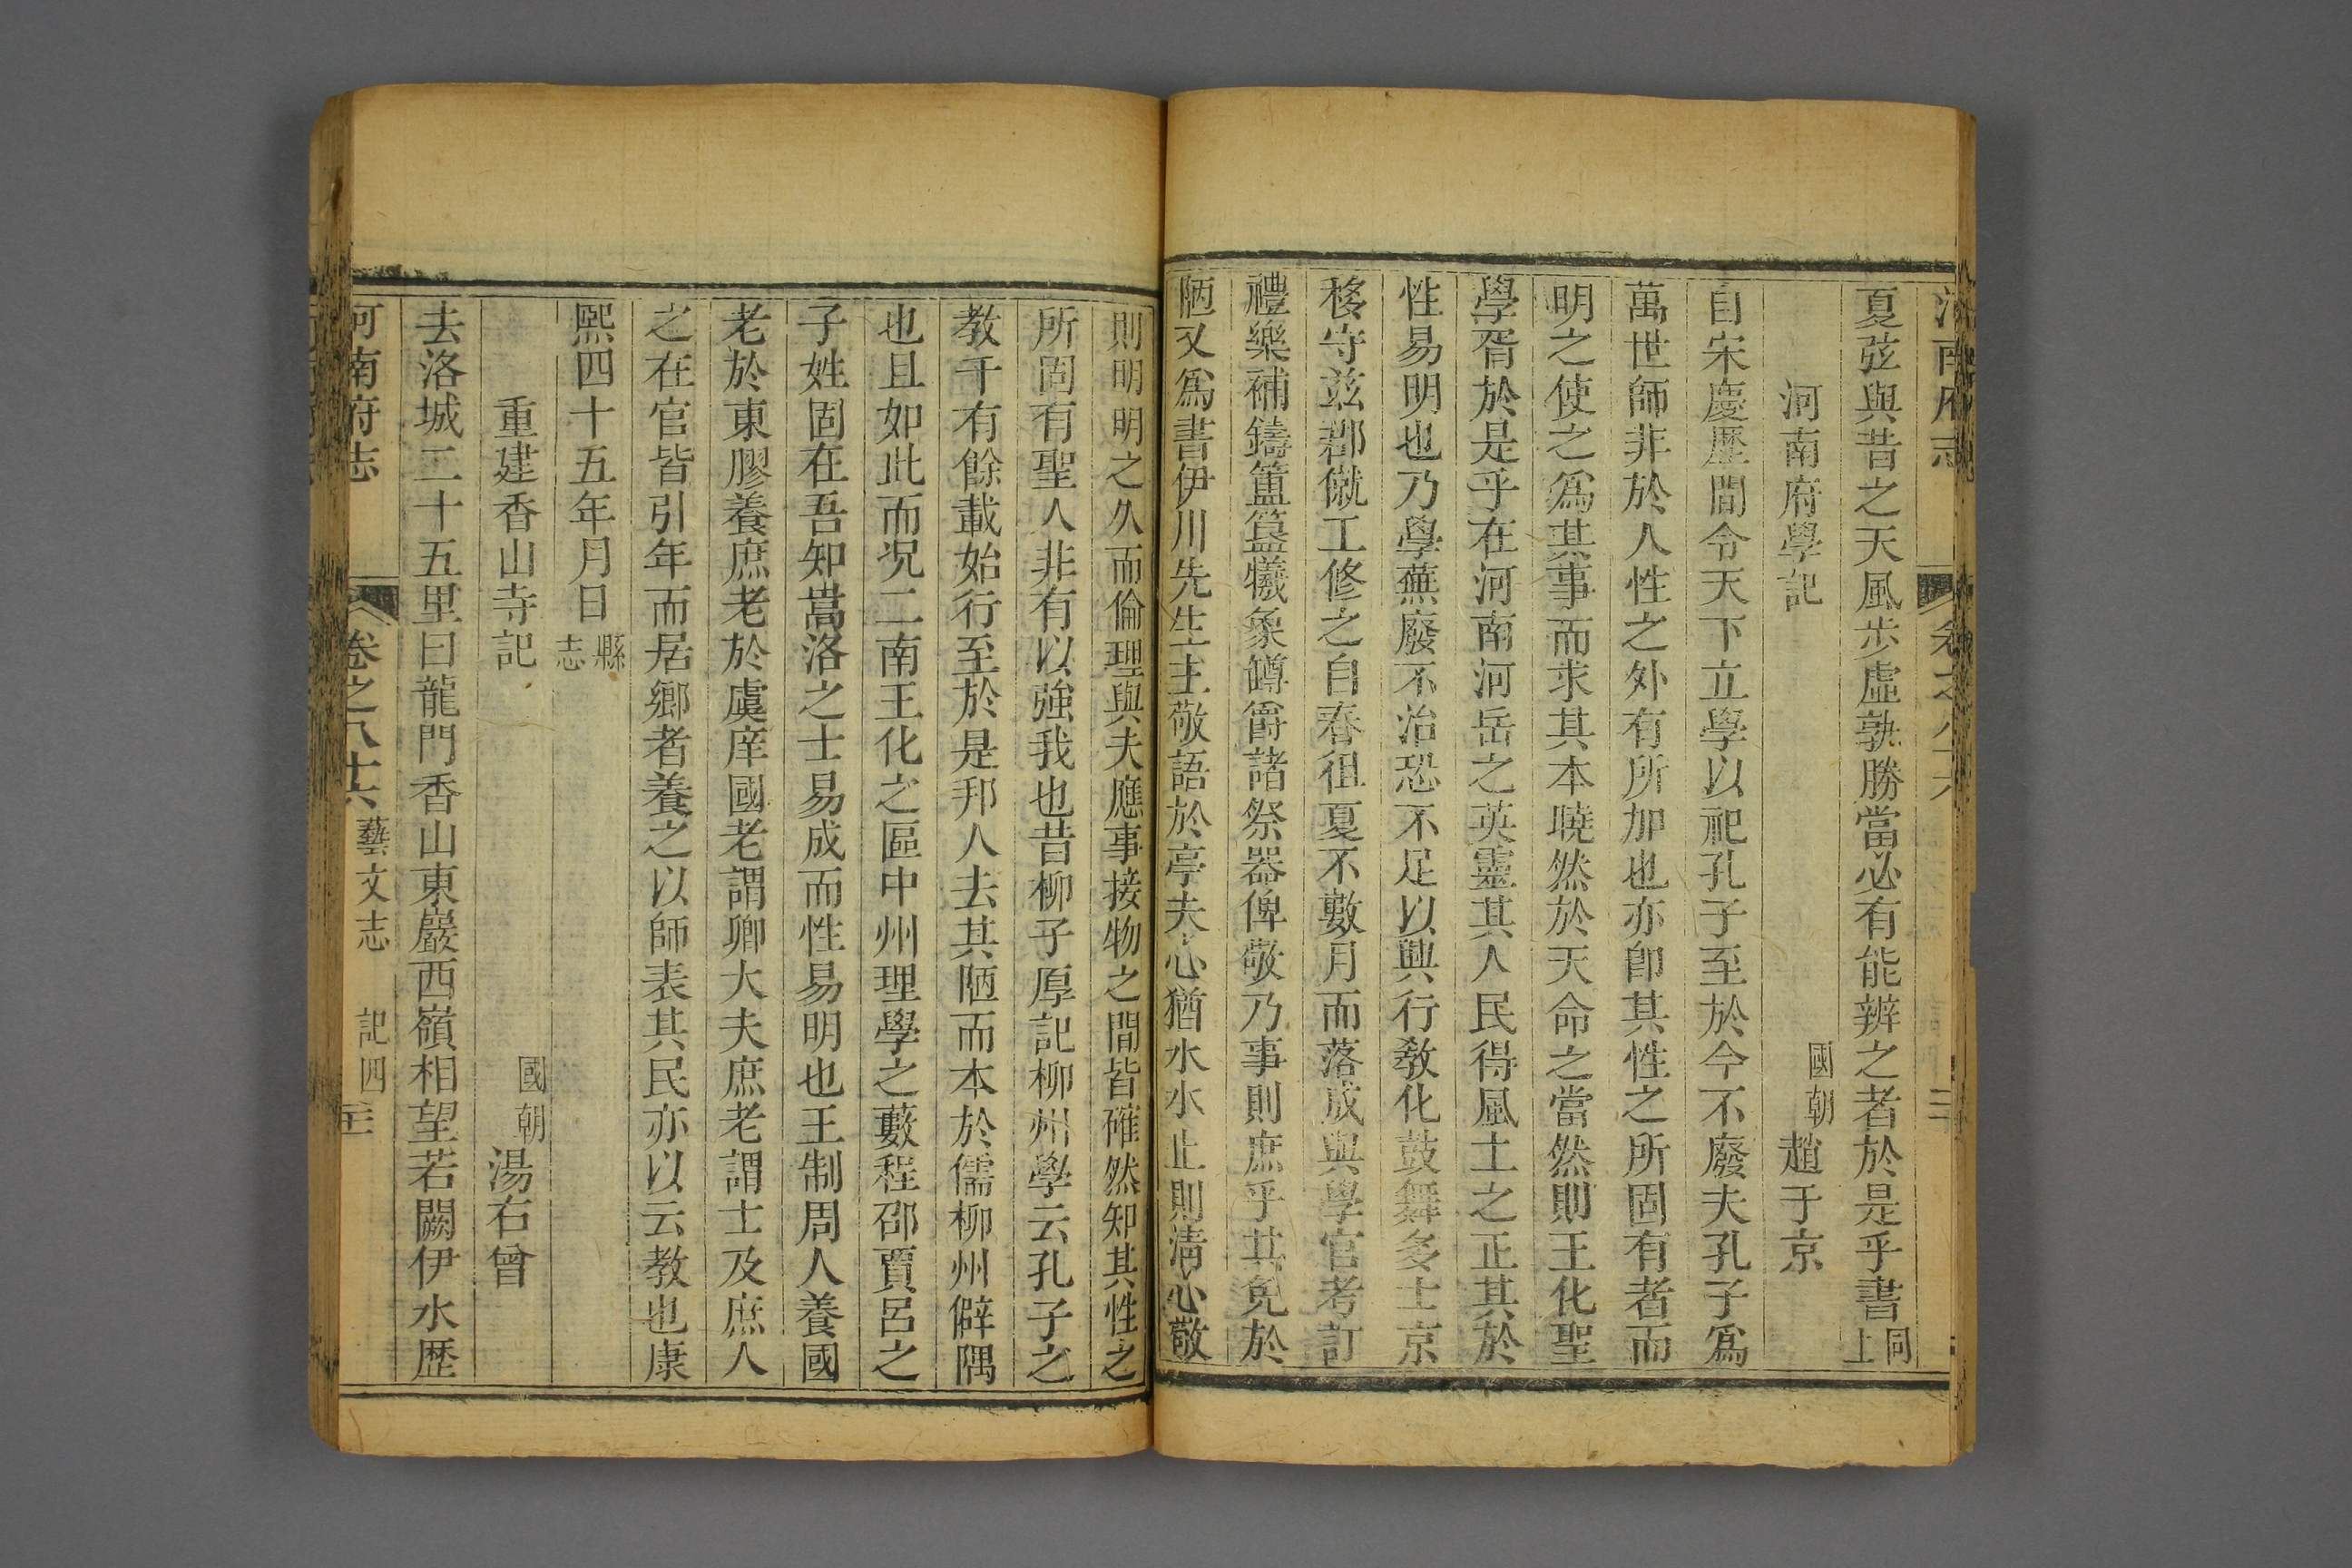 夏弦與昔之天風步虛孰勝當必有能辨之者於是乎書同上
河南府學記 國朝趙于京
自宋慶歷間令天下立學以祀孔子至於今不廢夫孔子爲
萬世師非於人性之外有所加也亦卽其性之所固有者而
明之使之爲其事而求其本曉然於天命之當然則王化聖
學胥於是乎在河南河岳之英靈其人民得風土之正其於
性易明也乃學蕪廢不治恐不足以興行教化鼓舞多士京
移守兹郡僦工修之自春徂夏不數月而落成與學官考訂
禮樂補鑄簠簋犧象罇爵諸祭器俾敬乃事則庶乎其免於
陋又爲書伊川先生主敬語於亭夫心猶水水止則淸心敬
則明明之久而倫理與夫應事接物之間皆確然知其性之
所固有聖人非有以強我也昔柳子厚記柳州學云孔子之
教千有餘載始行至於是邦人去其陋而本於儒柳州僻隅
也且如此而况二南王化之區中州理學之藪程邵賈呂之
子姓固在吾知嵩洛之士易成而性易明也王制周人養國
老於東膠養庶老於虞庠國老謂卿大夫庶老謂士及庶人
之在官皆引年而居鄉者養之以師表其民亦以云教也康
熙四十五年月日縣志
重建香山寺記 國朝湯右曾
去洛城二十五里曰龍門香山東巖西嶺相望若闕伊水歴
河南府志 卷之八十六 藝文志 記四